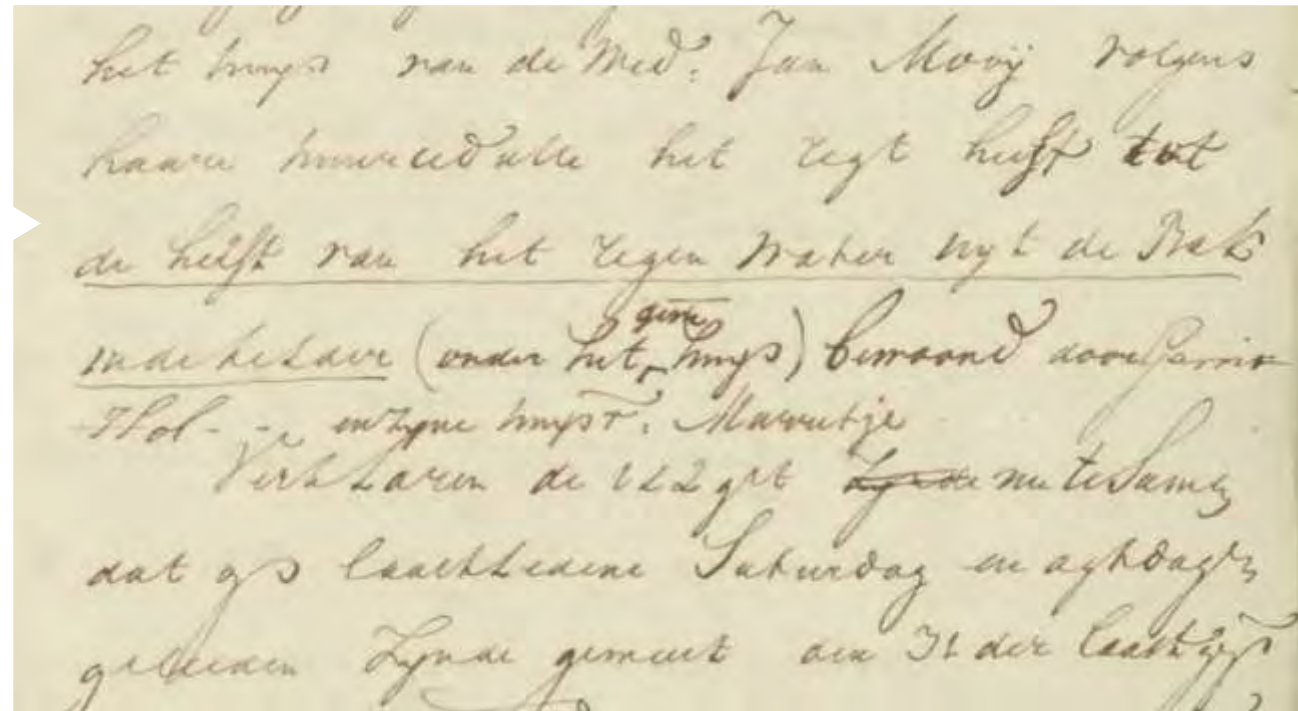 het huys van de Wed: Jan Mooij volgens
haare huurcedulle het regt heeft tot
de helft van het regen water uyt de Bak
in de kelder (onder het gem huys) bewoond door Gerrit
Hol- en zyne huysv: Marretje
Verklaren de get zynde nu te samen
dat op laastledene Saturdag en agtdagen
geleeden zynde geweest den 31 der laast